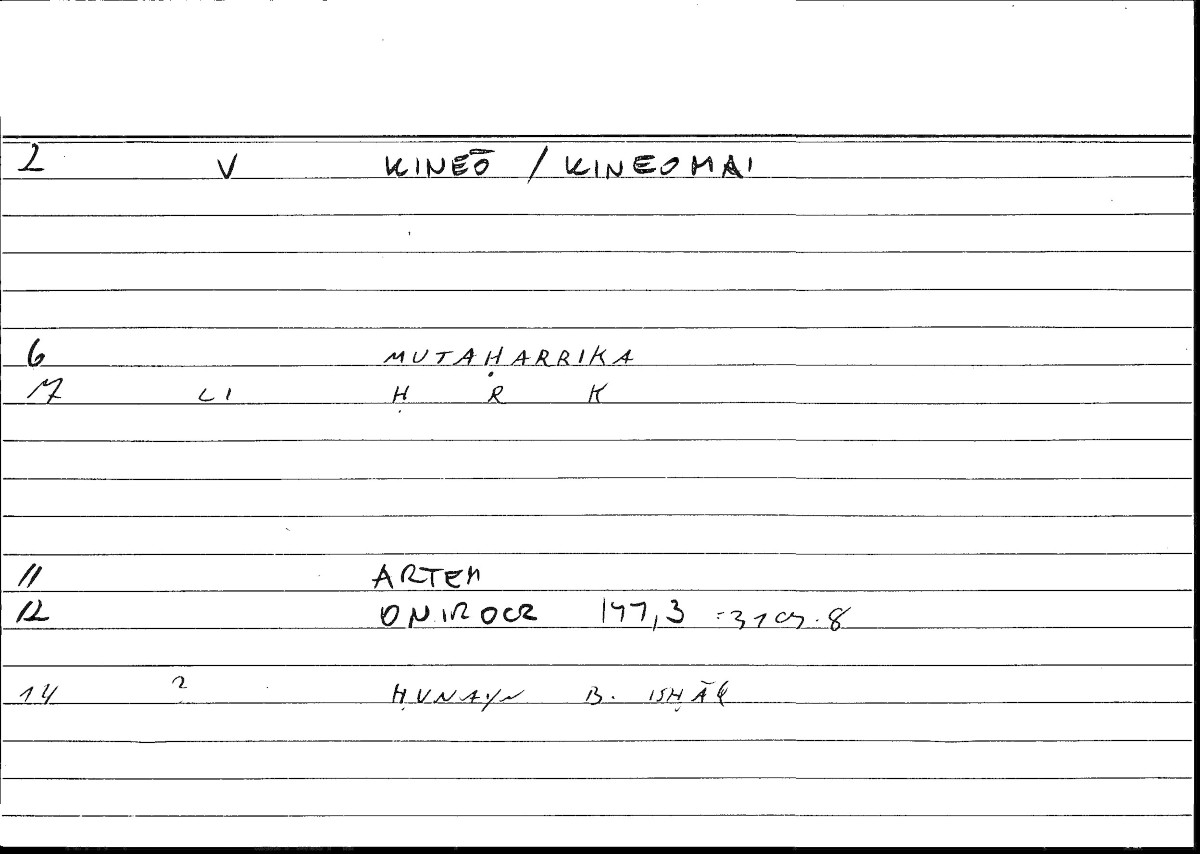 2 V KINEŌ / KINEOMAI
6 MUTAḤARRIKA
17 LI Ḥ R K
11 ARTEM
12 ONIROCR 177,3 =319.8
14 2 ḤUNAYN B. ISḤĀQ